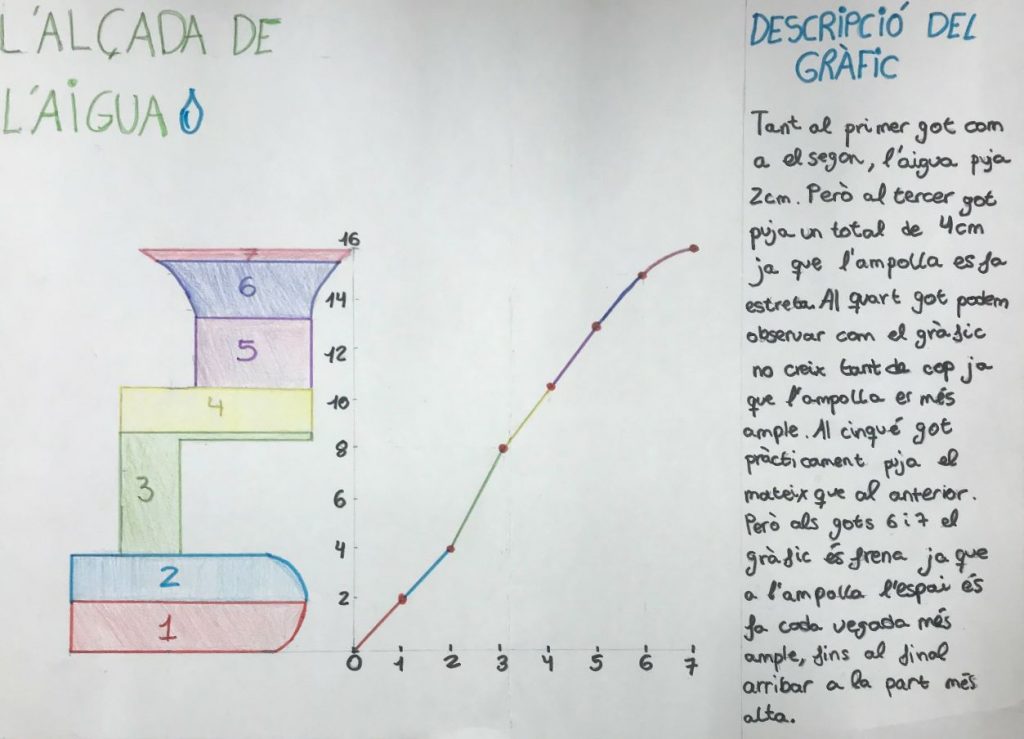 L'ALÇADA DE
L'AIGUA
DESCRIPCIÓ DEL
GRÀFIC
Tant al primer got com
a el segon, l'aigua puja
2cm. Però al tercer got
puja un total de 4cm
ja que l'ampolla es fa
estreta. Al quart got podem
observar com el gràfic
no creix tant de cop ja
que l'ampolla er més
ample. Al cinqué got
pràcticament puja el
mateix que al anterior.
Però als gots 6 i 7 el
gràfic és frena ja que
a l'ampolla l'espai és
fa cada vegada més
ample, fins al final
arribar a la part més
alta.
7
6
5
4
3
2
1
16
14
12
10
8
6
4
2
0 1 2 3 4 5 6 7